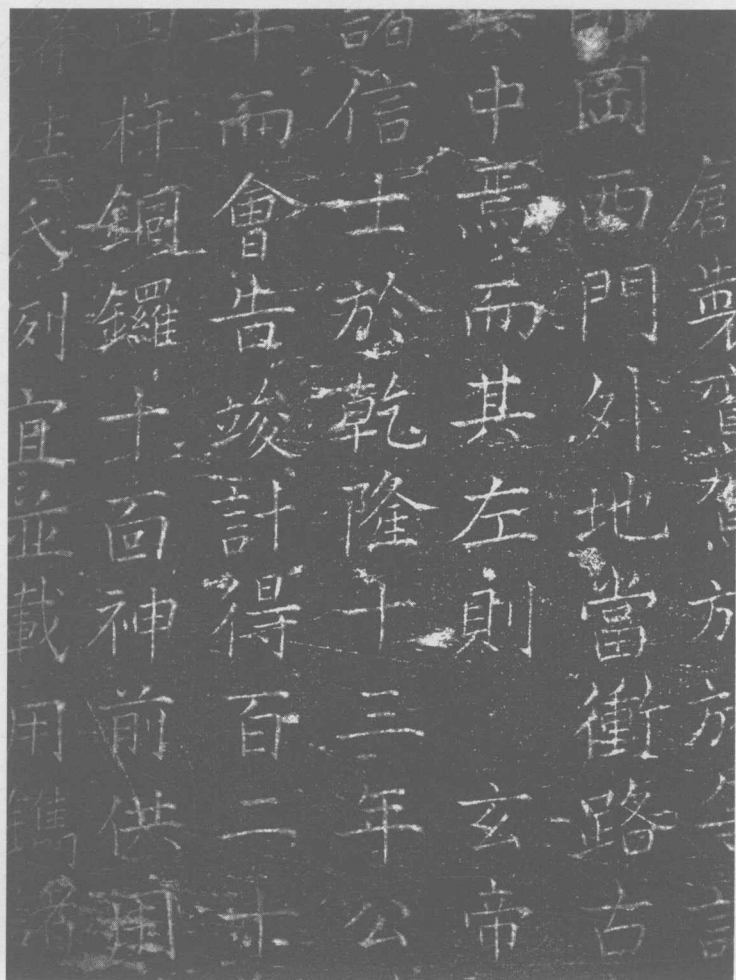 方
岡西門外地當衝路古
中焉而其左則 玄帝
諸信士於乾隆十三年公
年而會告竣計得百二十
銅鑼十面神前供用
氏列宜並載用鐫諸